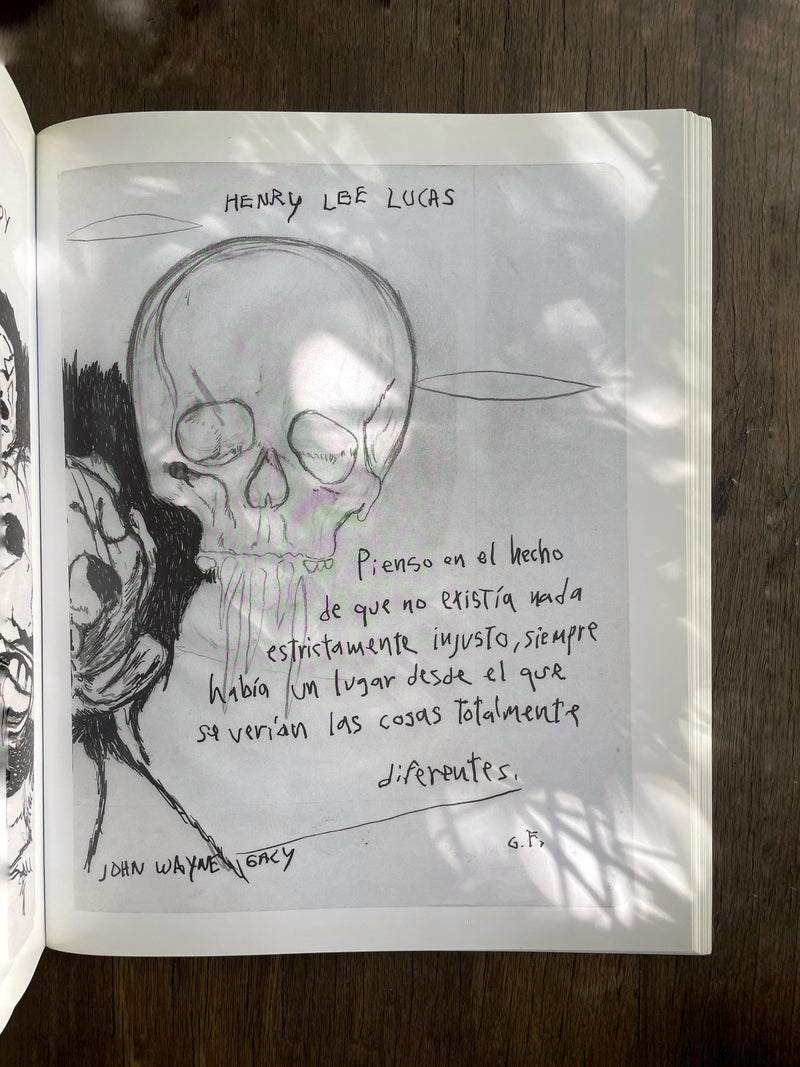 HENRY LEE LUCAS
Pienso en el hecho
de que no existía nada
estrictamente injusto, siempre
había un lugar desde el que
se verían las cosas totalmente
diferentes.
G.F.
JOHN WAYNE GACY